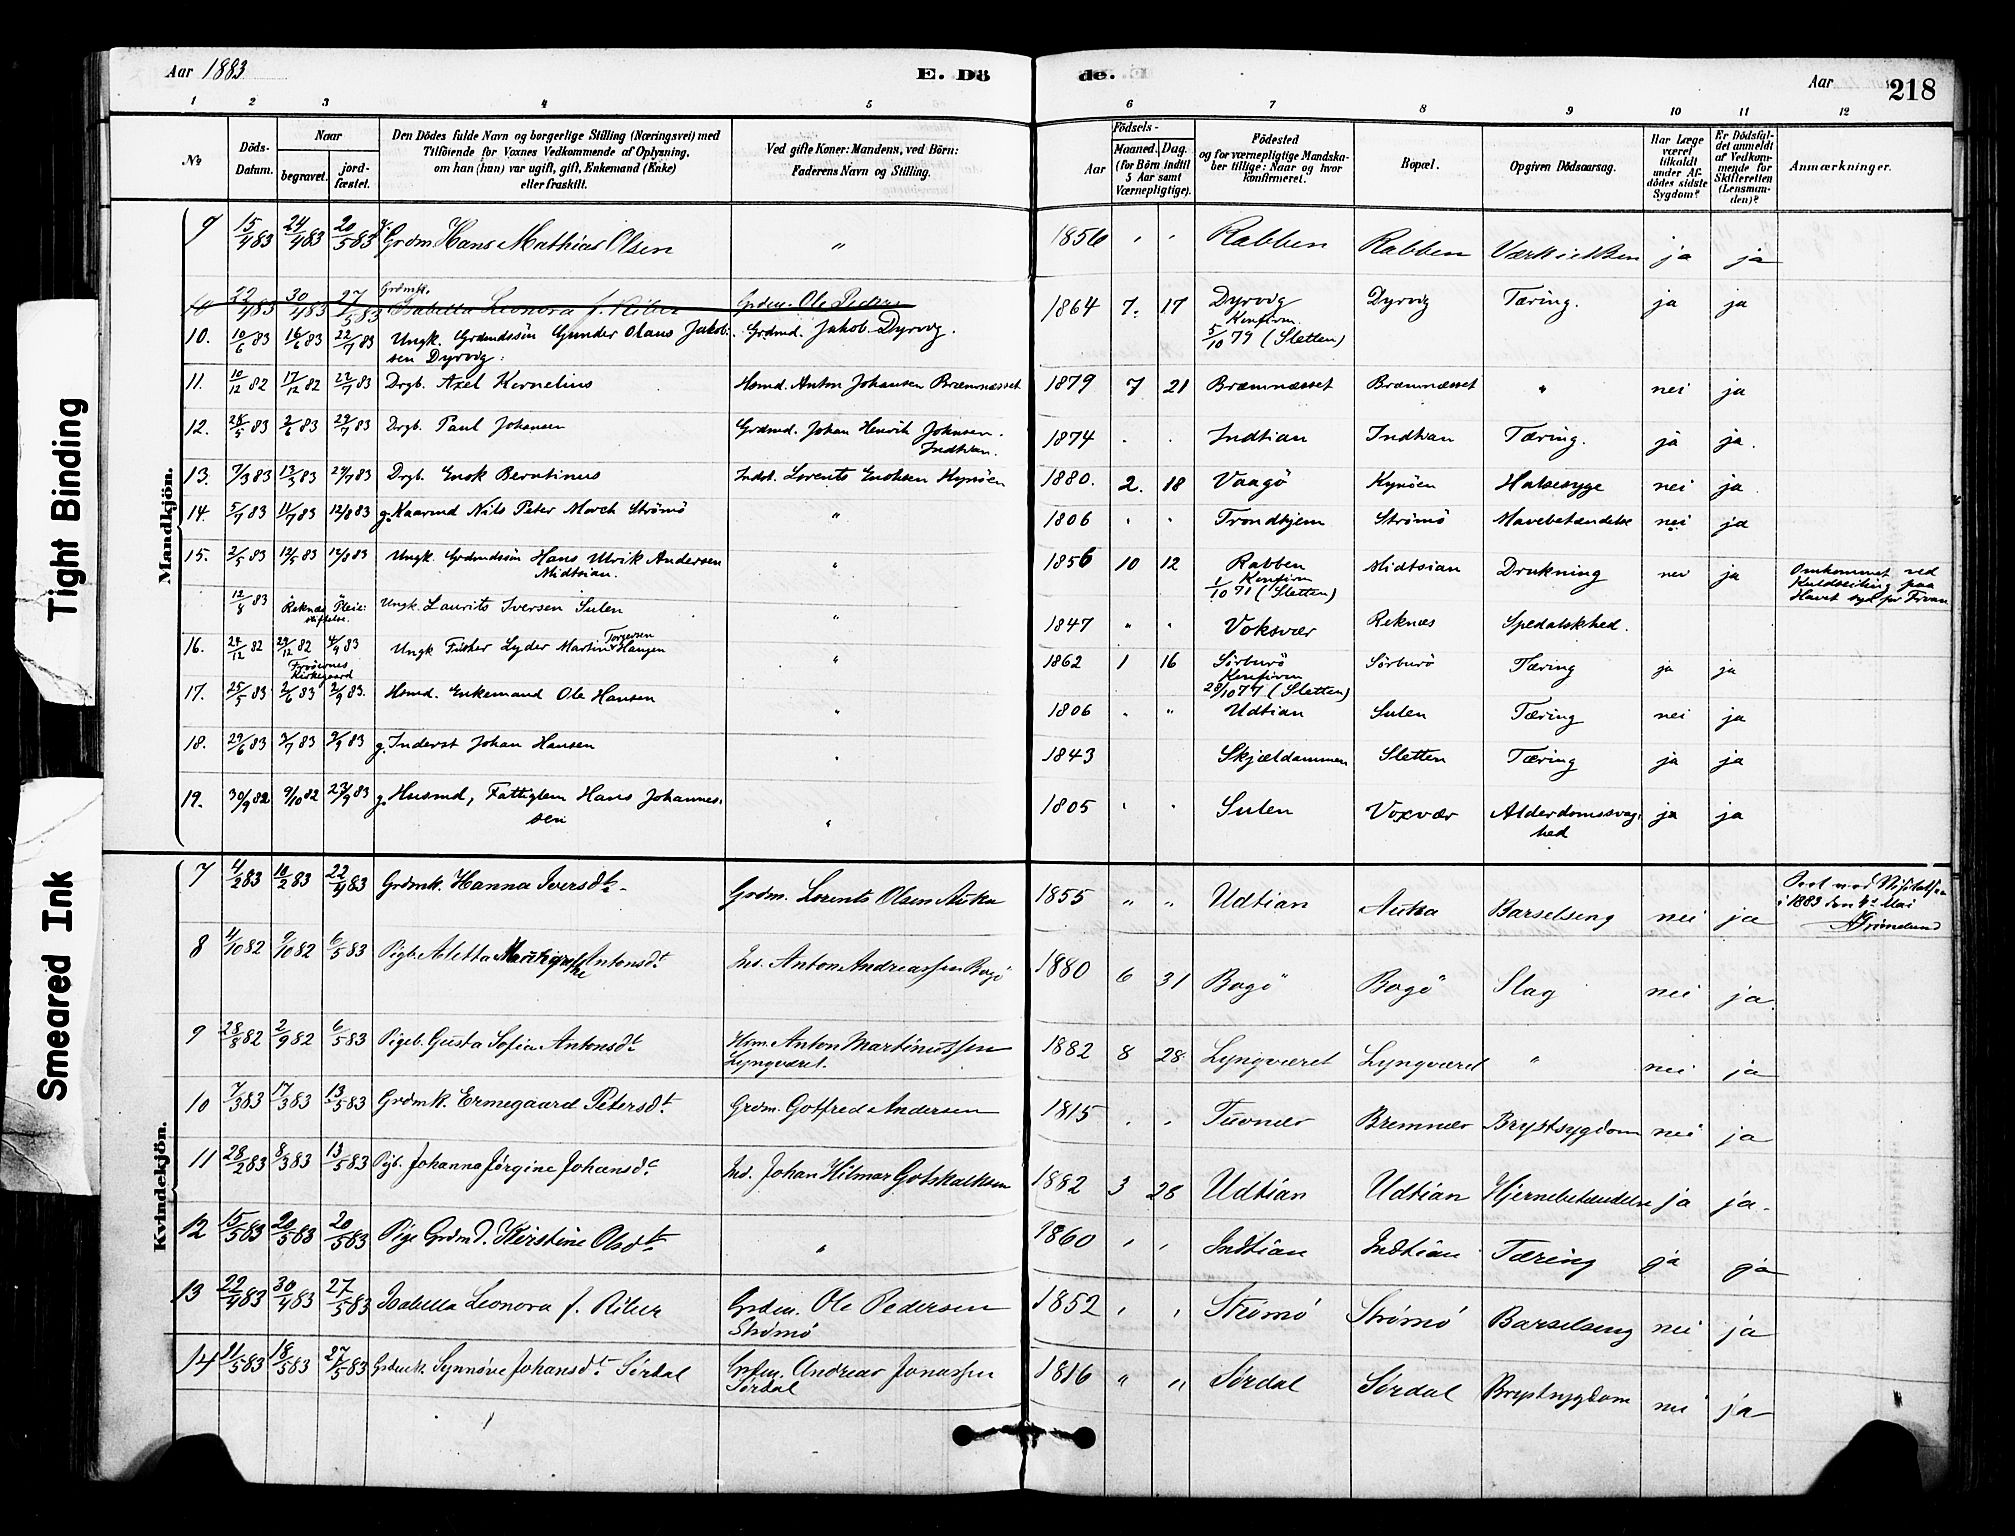 Aar 1883
E. Dö
de.
Aar
218
1 2 3 4 5 6 7 8 9 10 11 12
No
Döds-
Datum.
Naar
begravet.
jord-
fæstet.
Den Dödes fulde Navn og borgerlige Stilling (Næringsvei) med
Tilföiende for Voxnes Vedkommende af Oplysning,
om han (hun) var ugift, gift, Enkemand (Enke)
eller fraskilt.
Ved gifte Koner: Mandens, ved Börn:
Faderens Navn og Stilling.
Födsels-
Aar
Maaned. Dag.
(for Börn indtil
5 Aar samt
Værnepligtige).
Födested
og for værnepligtige Mandska-
ber tillige: Naar og hvor
konfirmeret.
Bopæl.
Opgiven Dödsaarsag.
Har Læge
været
tilkaldt
under Af-
dödes sidste
Sygdom?
Er Dödsfal-
det anmeldt
af Vedkom-
mende for
Skifteretten
(Lensman-
den)?
Anmærkninger.
Mandkjön.
9 15/4 83 24/4 83 20/5 83 g. Grdm Hans Mathias Olsen " 1856 " " Rabben Rabben Værk i ja ja
10 22/4 83 30/4 83 27/5 83 Grdmk. Isabella Leonora f. Riber Grdm. Ole Pedersen
10. 10/6 83 16/6 83 22/7 83 Ungk. Grdmdssön Gunder Olaus Jakob: Grdmd. Jakob Dyrvig. 1864 7. 17 Dyrvig Dyrvig Tæring. ja ja
sen Dyrvig:
Konfirm.
5/10 79 (Sletten)
11. 10/12 82 17/12 82 22/7 83 Drgb. Axel Kornelius Husmd. Anton Johansen Bræmnæsset 1879 7 21 Bræmnæsset Bræmnæsset " nei ja
12. 28/5 83 2/6 83 29/7 83 Drgb. Paul Johansen Grdmd. Johan Henrik Johnsen. 1874 . . Indtian Indtian Tæring. ja ja.
Indtian.
13. 7/3 83 13/3 83 29/7 83 Drgb. Enok Berntinus Indst. Lorents Enoksen Kynöen 1880. 2. 18 Vaagö Kynöen Halsesyge nei ja
14. 5/7 83 11/7 83 12/8 83 g. Kaarmd Nils Peter Morch Strömö " 1806 " " Trondhjem Strömö Mavebetændelse nei ja
15. 2/5 83 12/5 83 12/8 83 Ungk. Grdmdssön Hans Ulrik Andersen " 1856 10 12 Rabben Midtsian Drukning nei ja Omkommet ved
Midtsian.
Konfirm
1/10 71 (Sletten)
Kuldseiling paa
Havet syd for
12/8 83 Reknæs Pleie- Ungk. Laurits Iversen Sulen " 1847 " " Voksvær Reknæs Spedalskhed.
stiftelse.
16. 24/12 82 29/12 82 4/9 83 Ungk Fisker Lyder Martin Torgersen Haugen " 1862 1 16 Sörburö Sörburö Tæring ja ja
Fröiernes
Kirkegaard
Konfirm
28/10 77 (Sletten)
17. 25/5 83 2/6 83 2/9 83. Husmd. Enkemand Ole Hansen " 1806 " " Udtian Sulen Tæring nei ja
18. 29/6 83 3/7 83 2/9 83 g. Inderst Johan Hansen " 1843 Skjældammen Sletten Tæring ja ja
19. 30/9 82 9/10 82 23/9 83 g. Husmd, Fattiglem Hans Johannes: " 1805 " " Sulen Voxvær Alderdomssvag: ja ja
sen
hed
Kvindekjön.
7 4/2 83 10/2 83 22/4 83 Grdmk. Hanna Iversdt. Grdm. Lorents Olsen Auka 1855 " " Udtian Auka Barselseng nei ja
i 1883 den 4de Mai
Grimelund
8 4/10 82 9/10 82 6/5 83 Pigb. Aletta Antonsdt Ins. Anton Andreassen Bogö 1880 6 31 Bogö Bogö Slag nei ja
9 28/8 82 2/9 82 6/5 83 Pigeb. Gusta Sofia Antonsdt Hsm. Anton Martinussen 1882 8 28 Lyngværet Lyngværet " nei ja
Lyngværet.
10 7/3 83 17/3 83 13/5 83 Grdmk. Ermegaard Petersdt. Grdm. Gotfred Andersen 1815 . . Tuvnær Bremnær Brystsygdom nei ja
11 28/2 83 8/3 83 13/5 83 Pigb. Johanna Jörgine Johansdt Ins. Johan Hilmar Gotskalksen 1882 3 28 Udtian Udtian Hjernebetændelse ja ja.
12 15/5 83 20/5 83 20/5 83 Pige Grdmd. Kirstine Olsdt. " 1860 " " Indtian Indtian Tæring ja ja
13 22/4 83 30/4 83 27/5 83 Isabella Leonora f. Riber Grdm. Ole Pedersen 1852 " " Strömö Strömö Barselseng nei ja
Strömö
14 11/5 83 18/5 83 27/5 83 Grdmk. Synnöve Johansdt. Sördal Grdm. Andreas Jonassen 1816 " " Sördal Sördal Brystsygdom nei ja
Sördal
Tight Binding
Smeared Ink